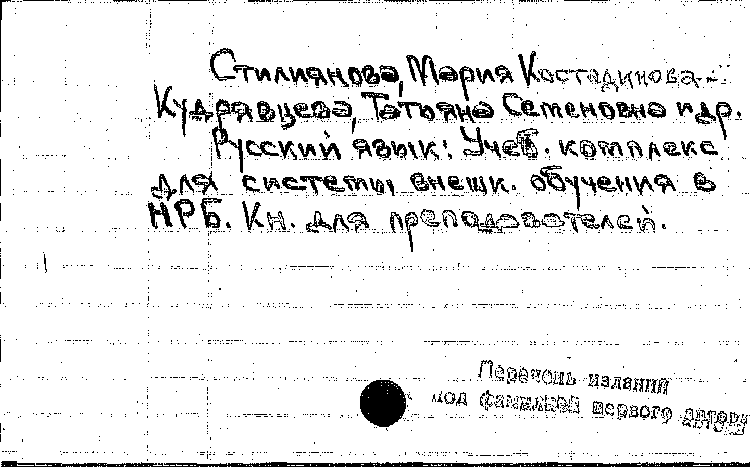 Стилиянова, Мария Костадинова-
Кудрявцева, Татьяна Семеновна и др.
Русский язык: Учеб. комплекс
для системы внешк. обучения в
НРБ. Кн. для преподавателей.
Перечень изданий
под фамилией первого автора